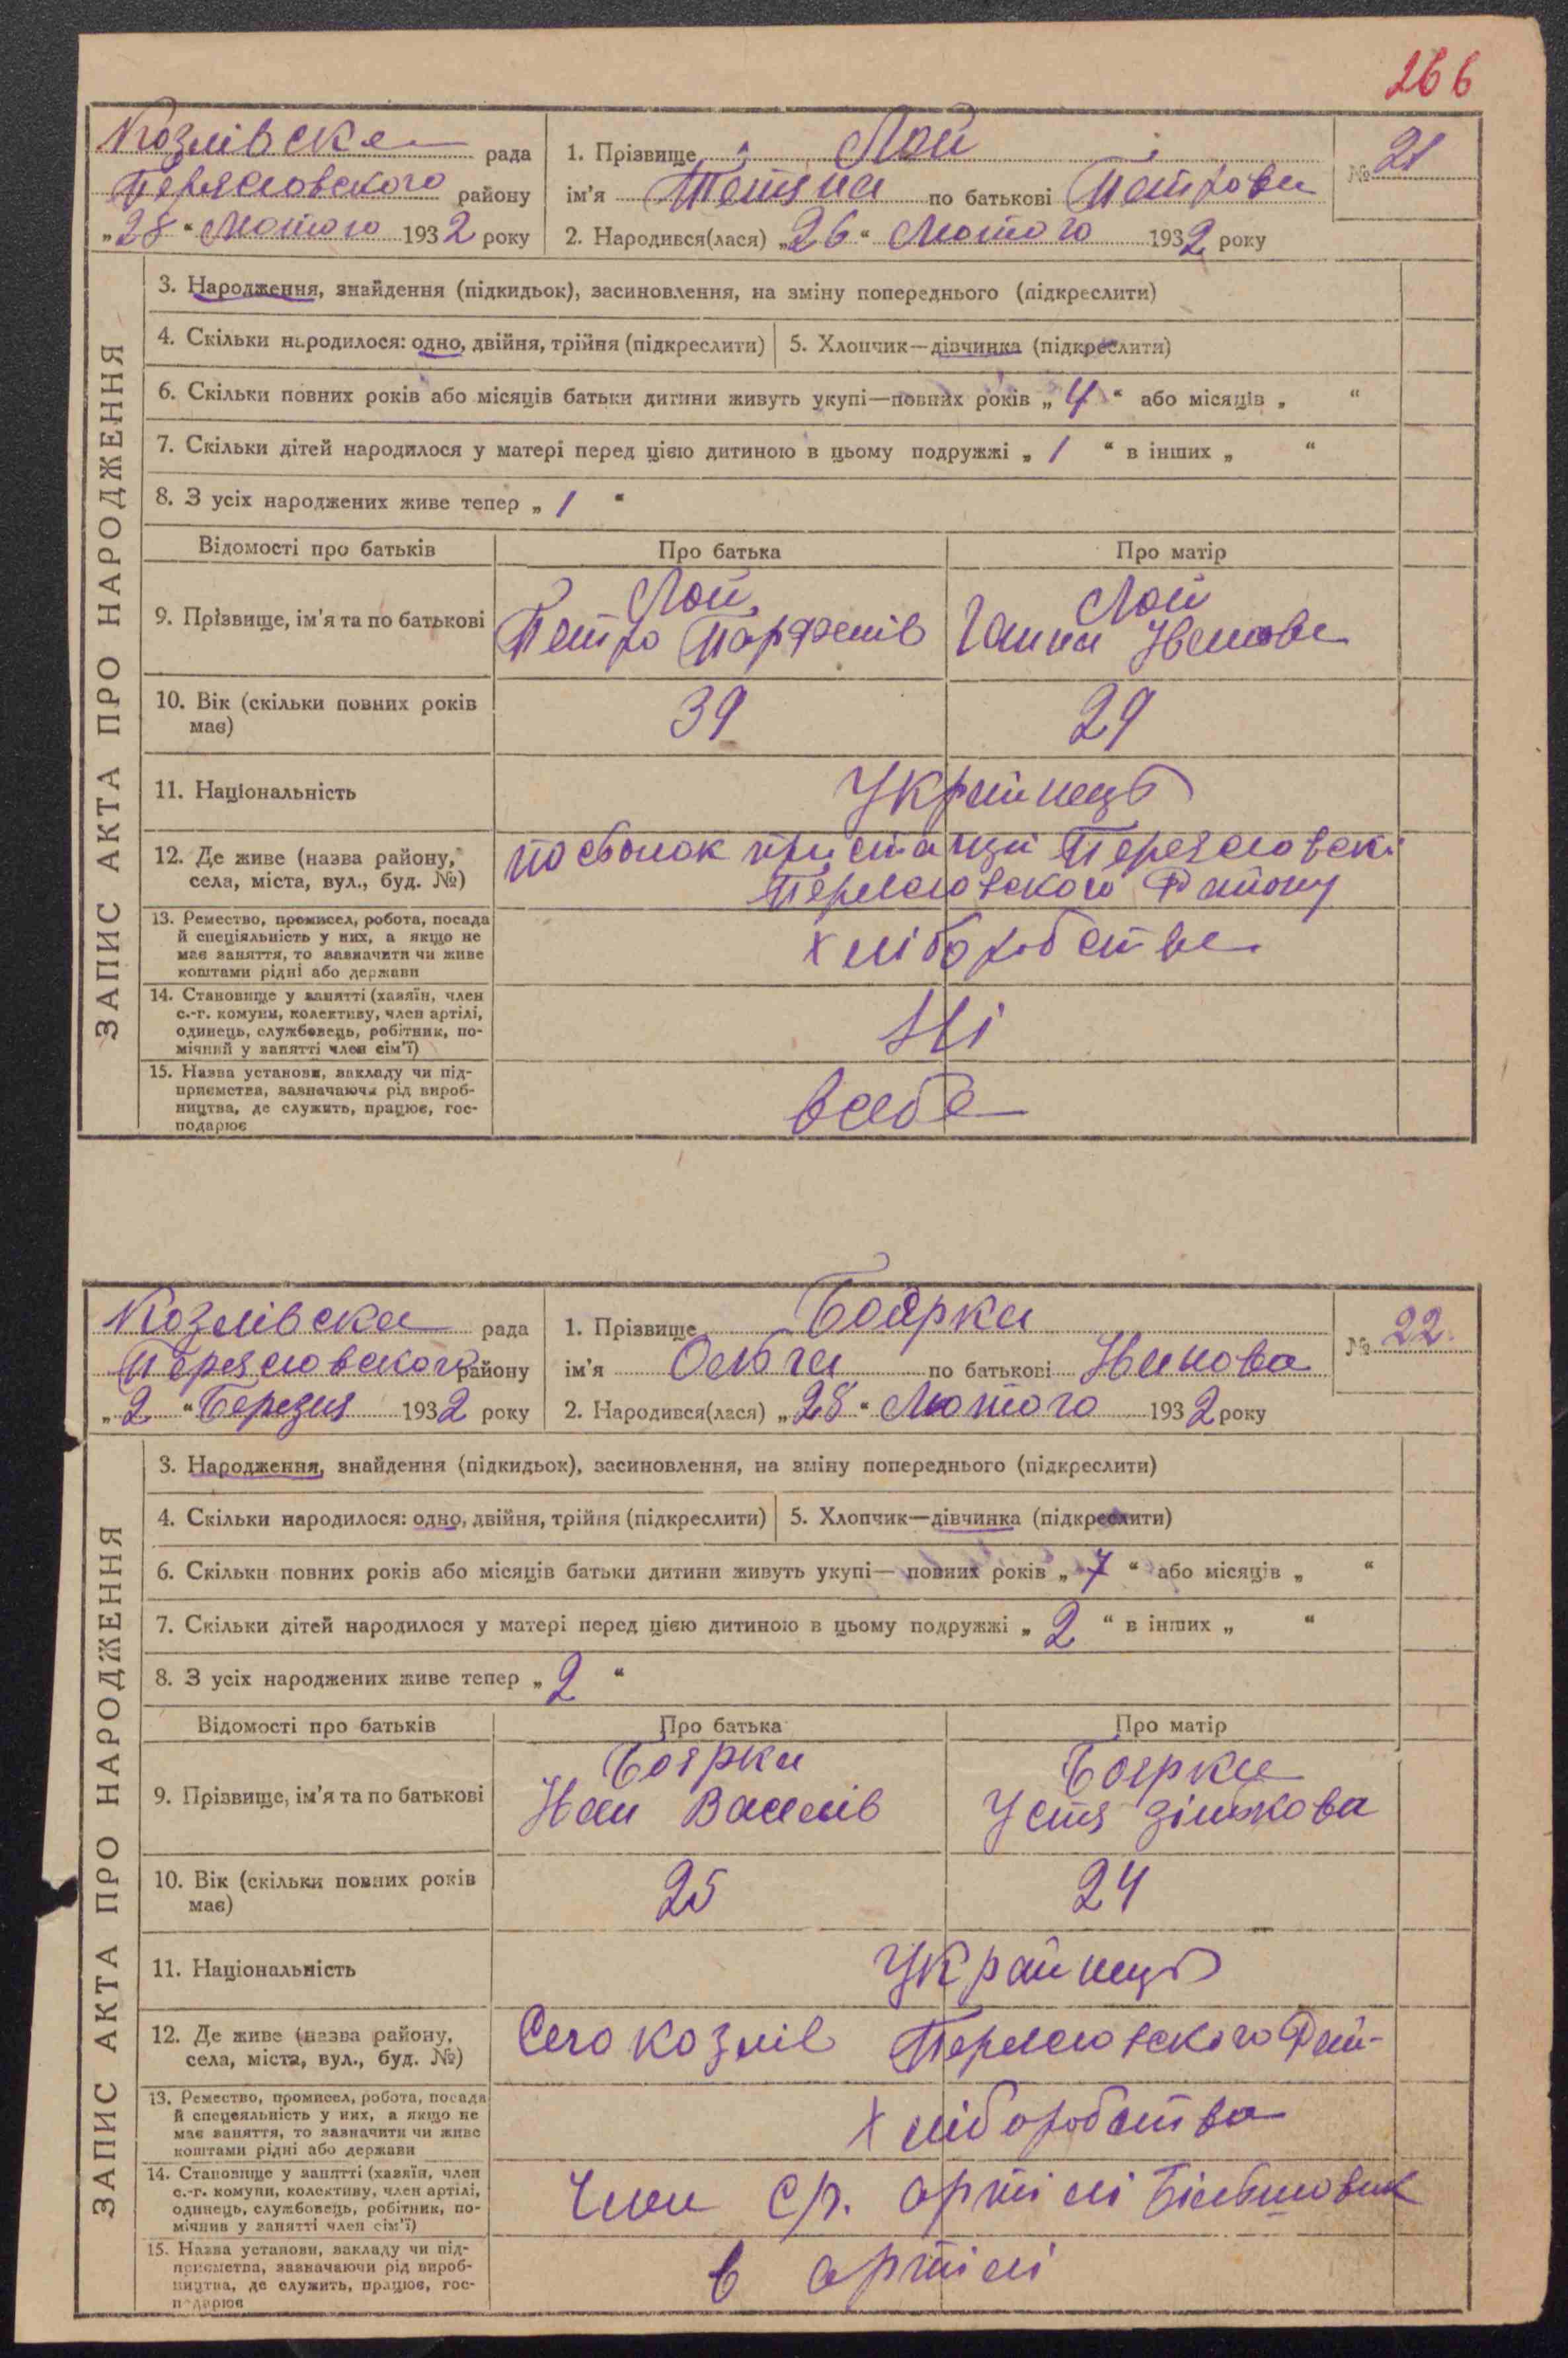 266
Козлівска рада
Переясловского району
„28“ Лютого 1932 року
1. Прізвище Лой
ім'я Тетяна по батькові Петрова
2. Народився(лася) „26“ Лютого 1932 року
№ 21
ЗАПИС АКТА ПРО НАРОДЖЕННЯ
3. Народження, знайдення (підкидьок), засиновлення, на зміну попереднього (підкреслити)
4. Скільки народилося: одно, двійня, трійня (підкреслити) 5. Хлопчик—дівчинка (підкреслити)
6. Скільки повних років або місяців батьки дитини живуть укупі—повних років „4“ або місяців „ “
7. Скільки дітей народилося у матері перед цією дитиною в цьому подружжі „1“ в інших „ “
8. З усіх народжених живе тепер „1“
Відомості про батьків Про батька Про матір
9. Прізвище, ім'я та по батькові Лой Петро Парфенів Лой Ганна Иванова
10. Вік (скільки повних років має) 39 29
11. Національність Українець
12. Де живе (назва району, села, міста, вул., буд. №) посьолок пристанці Переясловскі
Переясловского Району
13. Ремество, промисел, робота, посада й спеціяльність у них, а якщо не має заняття, то зазначити чи живе коштами рідні або держави хліборобства
14. Становище у занятті (хазяїн, член с.-г. комуни, колективу, член артілі, одинець, службовець, робітник, помічний у занятті член сім'ї) Ні
15. Назва установи, закладу чи підприємства, зазначаючи рід виробництва, де служить, працює, господарює всебе
Козлівска рада
Переясловского району
„2“ Березня 1932 року
1. Прізвище Боярка
ім'я Ольга по батькові Иванова
2. Народився(лася) „28“ Лютого 1932 року
№ 22.
ЗАПИС АКТА ПРО НАРОДЖЕННЯ
3. Народження, знайдення (підкидьок), засиновлення, на зміну попереднього (підкреслити)
4. Скільки народилося: одно, двійня, трійня (підкреслити) 5. Хлопчик—дівчинка (підкреслити)
6. Скільки повних років або місяців батьки дитини живуть укупі— повних років „7“ або місяців „ “
7. Скільки дітей народилося у матері перед цією дитиною в цьому подружжі „2“ в інших „ “
8. З усіх народжених живе тепер „2“
Відомості про батьків Про батька Про матір
9. Прізвище, ім'я та по батькові Боярка Иван Василів Боярка Устя
10. Вік (скільки повних років має) 25 24
11. Національність Українець
12. Де живе (назва району, села, міста, вул., буд. №) Село козлів Переясловского Рай-
13. Ремество, промисел, робота, посада й спецеяльність у них, а якщо не має заняття, то зазначити чи живе коштами рідні або держави Хліборобства
14. Становище у занятті (хазяїн, член с.-г. комуни, колективу, член артілі, одинець, службовець, робітник, помічний у занятті член сім'ї) Член ср. артілі Більшовик
15. Назва установи, закладу чи підприємства, зазначаючи рід виробництва, де служить, працює, господарює в артілі